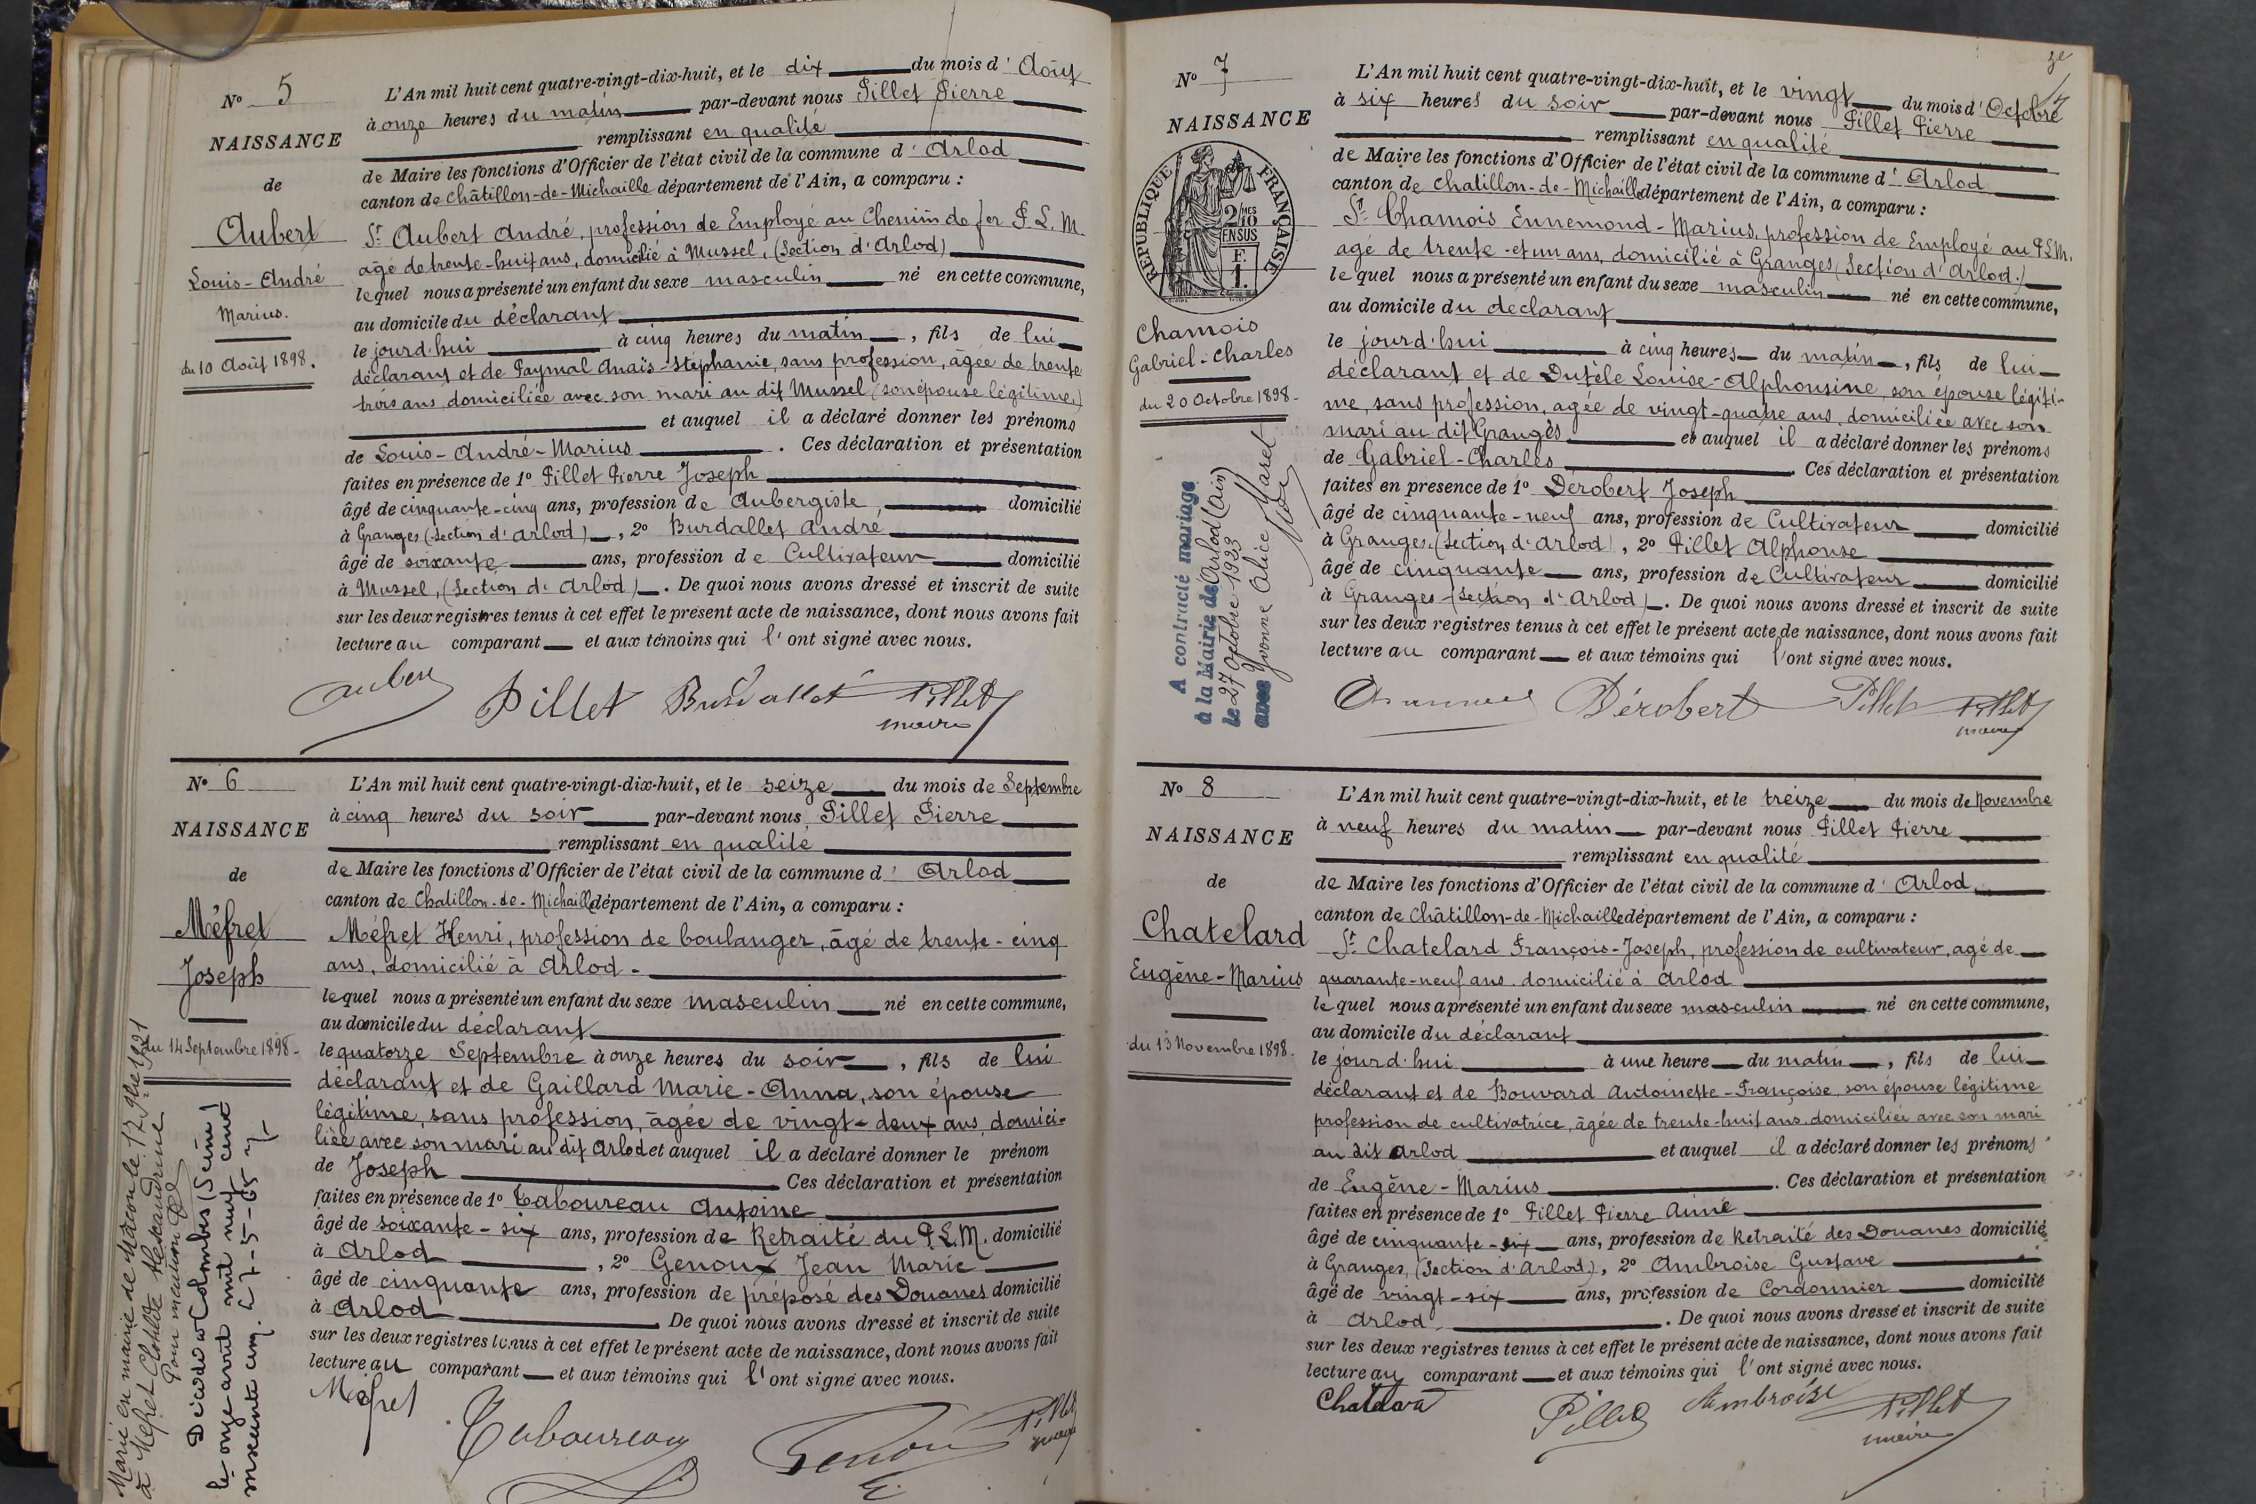 N° 5
NAISSANCE
de
Aubert
Louis-André
Marius.
du 10 Août 1898.
L'An mil huit cent quatre-vingt-dix-huit, et le dix du mois d'Août
à onze heures du matin par-devant nous Pillet Pierre
remplissant en qualité
de Maire les fonctions d'Officier de l'état civil de la commune d'Arlod
canton de Châtillon-de-Michaille département de l'Ain, a comparu :
Sr. Aubert André, profession de Employé au Chemin de fer P. L. M.
âgé de trente-huit ans, domicilié à Mussel, (Section d'Arlod)
lequel nous a présenté un enfant du sexe masculin né en cette commune,
au domicile du déclarant
le jourd'hui à cinq heures du matin, fils de lui
déclarant et de Paymal Anaïs-Stéphanie, sans profession, âgée de trente
trois ans, domiciliée avec son mari au dit Mussel, (son épouse légitime)
et auquel il a déclaré donner les prénoms
de Louis-André-Marius. Ces déclaration et présentation
faites en présence de 1° Pillet Pierre Joseph
âgé de cinquante-cinq ans, profession de Aubergiste, domicilié
à Granges (Section d'Arlod), 2° Burdallet André
âgé de soixante ans, profession de Cultivateur domicilié
à Mussel, (Section d'Arlod). De quoi nous avons dressé et inscrit de suite
sur les deux registres tenus à cet effet le présent acte de naissance, dont nous avons fait
lecture au comparant et aux témoins qui l'ont signé avec nous.
Aubert Pillet Burdallet Pillet
maire
N° 6
NAISSANCE
de
Méfret
Joseph
du 14 Septembre 1898.
Marié en mairie de Macon le 17 9bre 1921
à Mefret Clotilde Alexandrine
Pour mention
Décédé à Colombes (Seine)
le onze août mil neuf cent
soixante cinq.
L'An mil huit cent quatre-vingt-dix-huit, et le seize du mois de Septembre
à cinq heures du soir par-devant nous, Pillet Pierre
remplissant en qualité
de Maire les fonctions d'Officier de l'état civil de la commune d'Arlod
canton de Chatillon-de-Michaille département de l'Ain, a comparu :
Méfret Henri, profession de boulanger, âgé de trente-cinq
ans, domicilié à Arlod.
lequel nous a présenté un enfant du sexe masculin né en cette commune,
au domicile du déclarant
le quatorze Septembre à onze heures du soir, fils de lui
déclarant et de Gaillard Marie-Anna, son épouse
légitime, sans profession, âgée de vingt-deux ans, domici-
liée avec son mari au dit Arlod et auquel il a déclaré donner le prénom
de Joseph Ces déclaration et présentation
faites en présence de 1° Taboureau Antoine
âgé de soixante-six ans, profession de Retraité du P.L.M. domicilié
à Arlod, 2° Genoux Jean Marie
âgé de cinquante ans, profession de préposé des Douanes domicilié
à Arlod. De quoi nous avons dressé et inscrit de suite
sur les deux registres tenus à cet effet le présent acte de naissance, dont nous avons fait
lecture au comparant et aux témoins qui l'ont signé avec nous.
Méfret Taboureau Genoux Pillet
maire
N° 7
NAISSANCE
RÉPUBLIQUE FRANÇAISE
2/10MES
EN SUS
F.
1.
Chamois
Gabriel-Charles
du 20 Octobre 1898.
A contracté mariage
à la Mairie de Arlod (Ain)
le 27 Octobre 1923
avec Yvonne Alice Maret
L'An mil huit cent quatre-vingt-dix-huit, et le vingt du mois d'Octobre
à six heures du soir par-devant nous Pillet Pierre
remplissant en qualité
de Maire les fonctions d'Officier de l'état civil de la commune d'Arlod
canton de chatillon-de-Michaille département de l'Ain, a comparu :
Sr. Chamois Ennemond-Marius, profession de Employé au P.L.M.
agé de trente-et un ans, domicilié à Granges (Section d'Arlod.)
lequel nous a présenté un enfant du sexe masculin né en cette commune,
au domicile du déclarant
le jourd'hui à cinq heures du matin, fils de lui
déclarant et de Dutèle Louise-Alphonsine, son épouse légiti-
me, sans profession, agée de vingt-quatre ans, domiciliée avec son
mari au dit Granges et auquel il a déclaré donner les prénoms
de Gabriel-Charles. Ces déclaration et présentation
faites en présence de 1° Dérobert Joseph
âgé de cinquante-neuf ans, profession de Cultivateur domicilié
à Granges, (Section d'Arlod), 2° Pillet Alphonse
âgé de cinquante ans, profession de Cultivateur domicilié
à Granges (Section d'Arlod). De quoi nous avons dressé et inscrit de suite
sur les deux registres tenus à cet effet le présent acte de naissance, dont nous avons fait
lecture au comparant et aux témoins qui l'ont signé avec nous.
Dérobert Pillet Pillet
maire
N° 8
NAISSANCE
de
Chatelard
Eugène-Marius
du 13 Novembre 1898.
L'An mil huit cent quatre-vingt-dix-huit, et le treize du mois de Novembre
à neuf heures du matin par-devant nous Pillet Pierre
remplissant en qualité
de Maire les fonctions d'Officier de l'état civil de la commune d'Arlod,
canton de Châtillon-de-Michaille département de l'Ain, a comparu :
Sr. Chatelard François-Joseph, profession de cultivateur, agé de
quarante-neuf ans, domicilié à Arlod
lequel nous a présenté un enfant du sexe masculin né en cette commune,
au domicile du déclarant
le jourd'hui à une heure du matin, fils de lui
déclarant et de Bouvard Antoinette-Françoise, son épouse légitime
profession de cultivatrice, âgée de trente-huit ans, domiciliée avec son mari
au dit Arlod et auquel il a déclaré donner les prénoms
de Eugène-Marius. Ces déclaration et présentation
faites en présence de 1° Pillet Pierre Aimé
âgé de cinquante-six ans, profession de Retraité des Douanes domicilié
à Granges, (Section d'Arlod), 2° Ambroise Gustave
âgé de vingt-six ans, profession de Cordonnier domicilié
à Arlod. De quoi nous avons dressé et inscrit de suite
sur les deux registres tenus à cet effet le présent acte de naissance, dont nous avons fait
lecture au comparant et aux témoins qui l'ont signé avec nous.
Chatelard Pillet Ambroise Pillet
maire